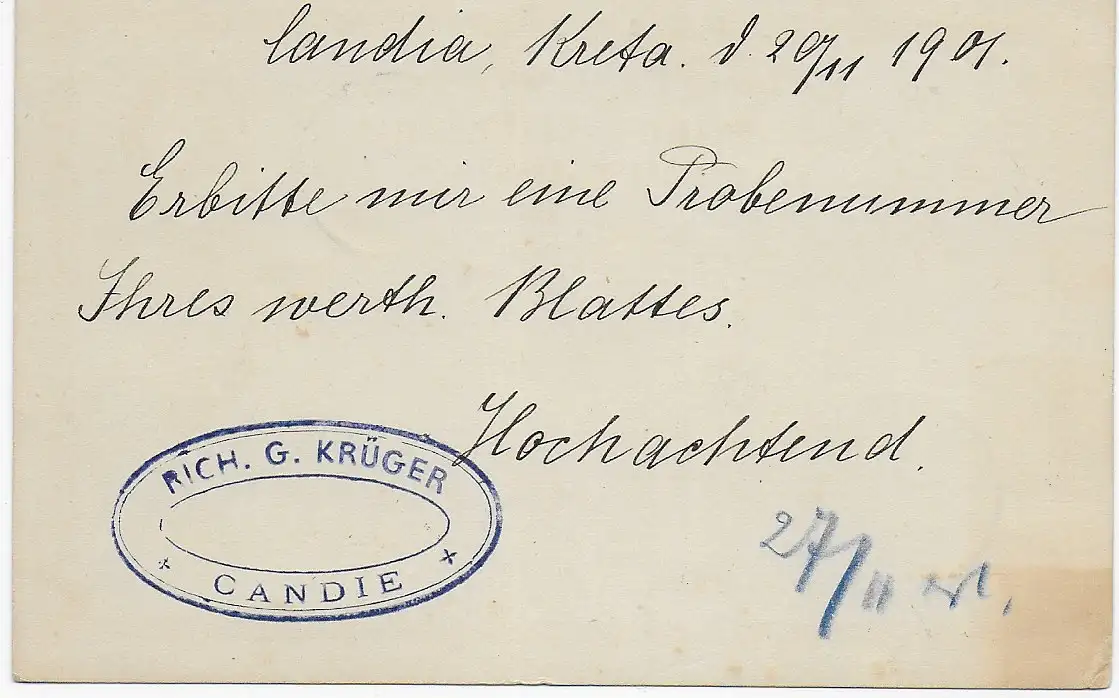 Candia, Kreta. d. 20/11 1901.
Erbitte mir eine Probenummer
Ihres werth. Blattes.
Hochachtend.
RICH. G. KRÜGER
CANDIE
27/11